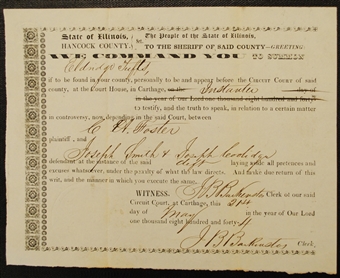 State of Illinois, } ss. The People of the State of Illinois,
HANCOCK COUNTY, TO THE SHERIFF OF SAID COUNTY—GREETING:
WE COMMAND YOU TO SUMMON
Eldridge Tufts,
if to be found in your county, personally to be and appear before the CIRCUIT COURT of said
county, at the Court House, in Carthage, on the Instanter day of
in the year of our Lord one thousand eight hundred and forty
to testify, and the truth to speak, in relation to a certain matter
in controversy, now depending in the said Court, between
C A Foster
plaintiff, and
Joseph Smith & Joseph Coolidge
defendant at the instance of the said deft laying aside all pretences and
excuses whatever, under the penalty of what the law directs. And make due return of this
writ, and the manner in which you execute the same.
WITNESS. J B Backenstos Clerk of our said
Circuit Court, at Carthage, this 21st
day of May in the year of Our Lord
one thousand eight hundred and forty-4
J. B. Backenstos Clerk,